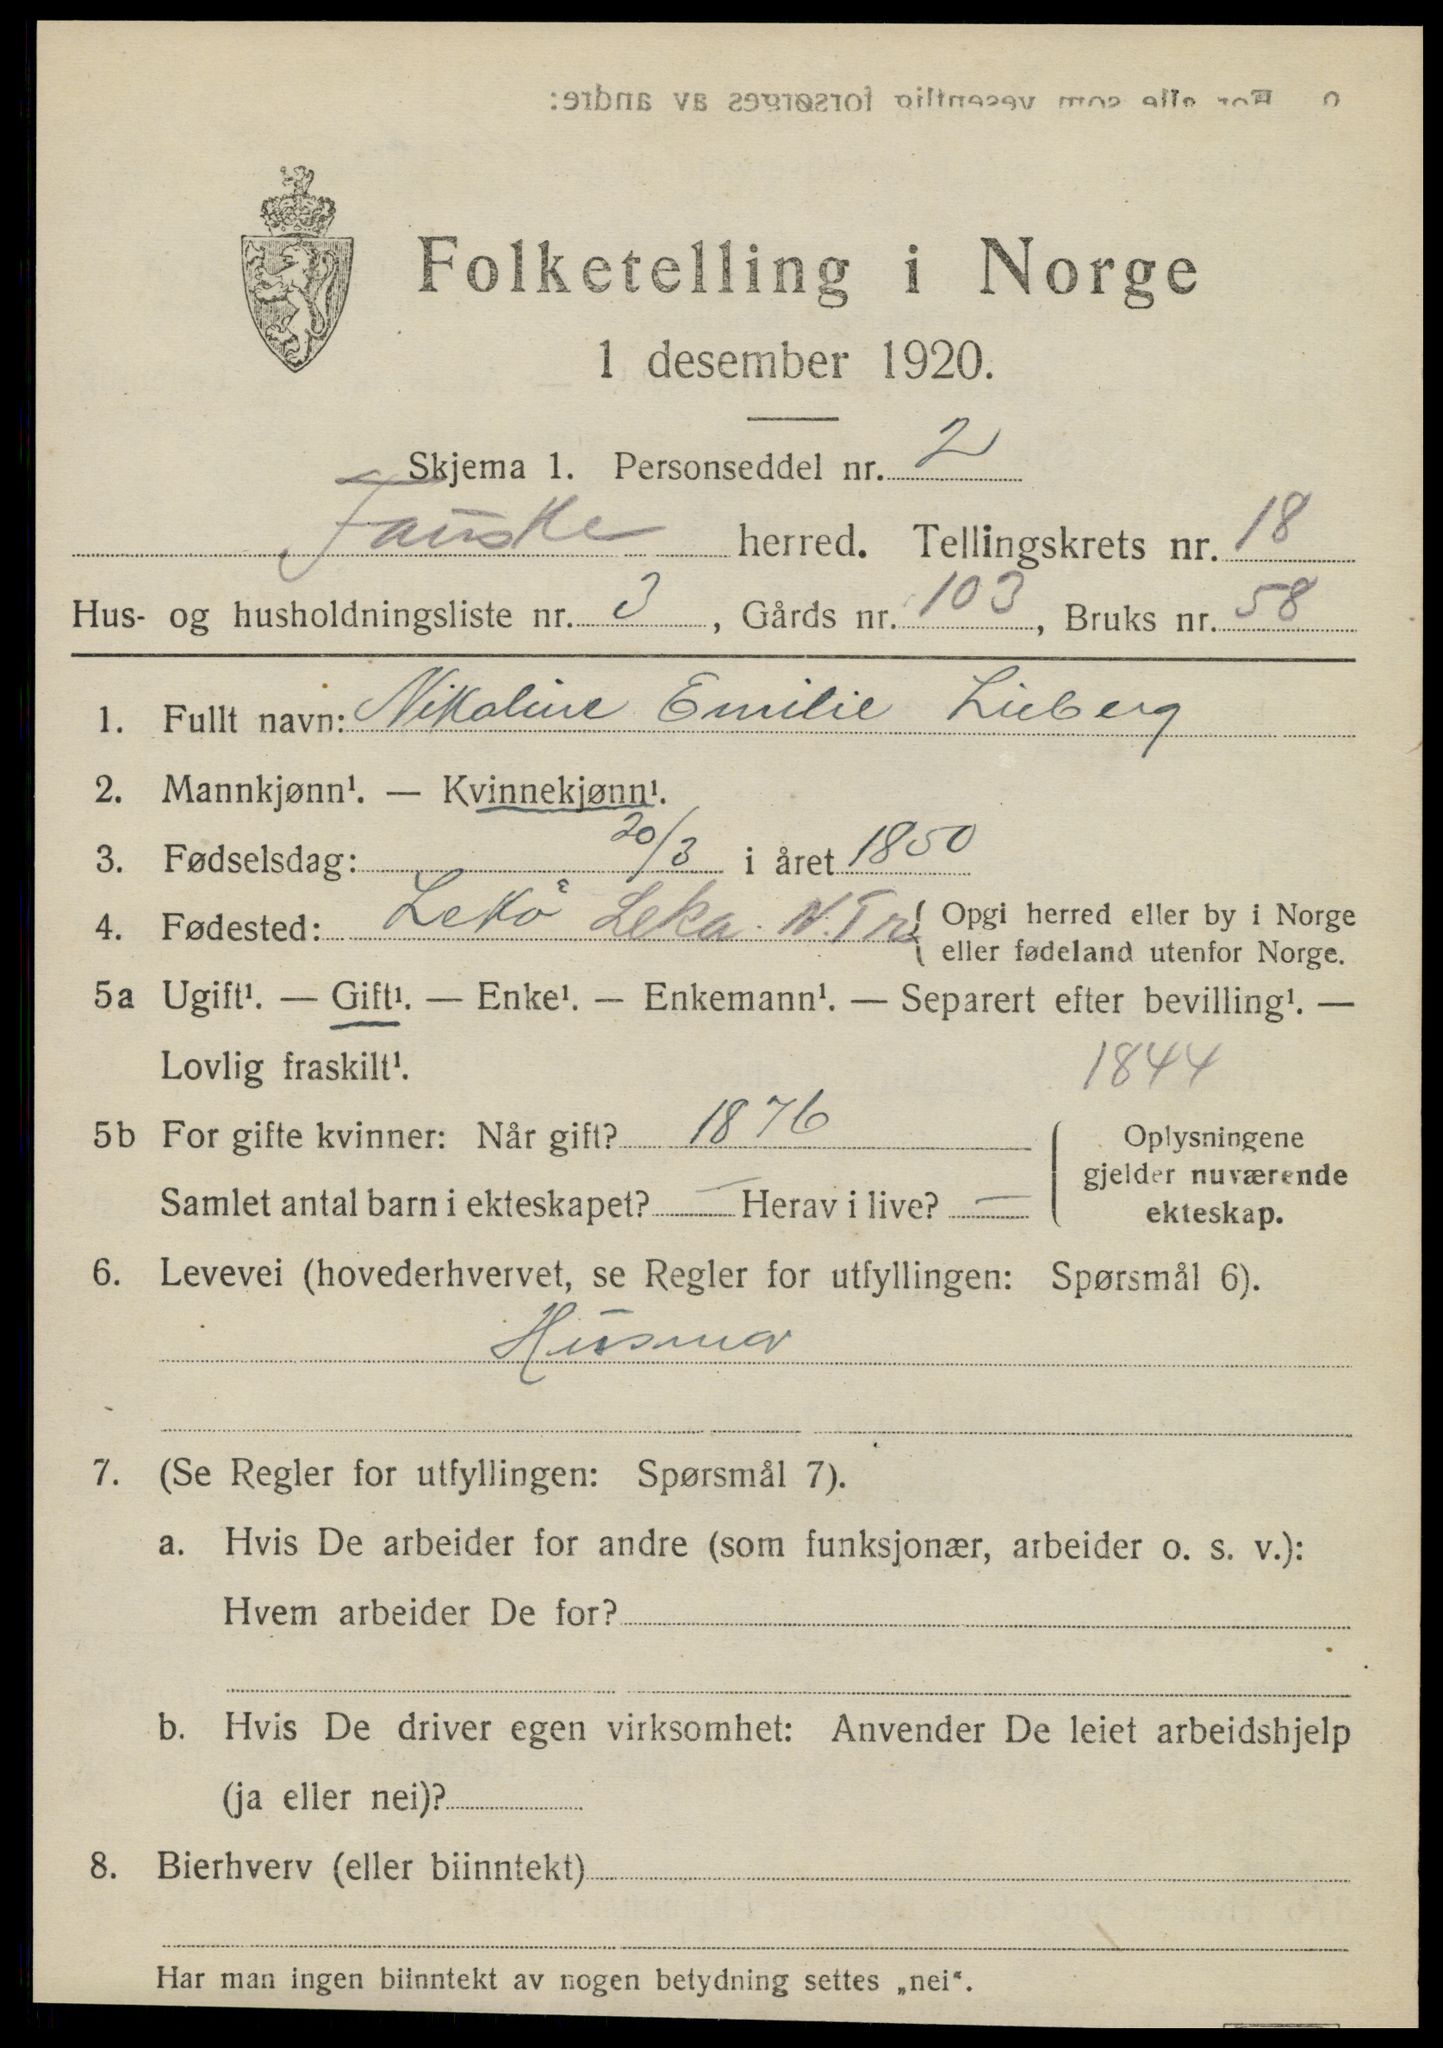 Folketelling i Norge
1 desember 1920.
Skjema 1. Personseddel nr. 2
Fauske herred. Tellingskrets nr. 18
Hus- og husholdningsliste nr. 3, Gårds nr. 103, Bruks nr. 58
1. Fullt navn: Nikoline Emilie Lieberg
2. Mannkjønn¹. — Kvinnekjønn¹.
3. Fødselsdag: 20/3 i året 1850
4. Fødested: Lekø Leka. N.Tr. { Opgi herred eller by i Norge
eller fødeland utenfor Norge.
5a Ugift¹. — Gift¹. — Enke¹. — Enkemann¹. — Separert efter bevilling¹. —
Lovlig fraskilt¹. 1844
5b For gifte kvinner: Når gift? 1876 Oplysningene
gjelder nuværende
Samlet antal barn i ekteskapet? — Herav i live? — ekteskap.
6. Levevei (hovederhvervet, se Regler for utfyllingen: Spørsmål 6).
Husmor
7. (Se Regler for utfyllingen: Spørsmål 7).
a. Hvis De arbeider for andre (som funksjonær, arbeider o. s. v.):
Hvem arbeider De for?
b. Hvis De driver egen virksomhet: Anvender De leiet arbeidshjelp
(ja eller nei)?
8. Bierhverv (eller biinntekt)
Har man ingen biinntekt av nogen betydning settes „nei“.